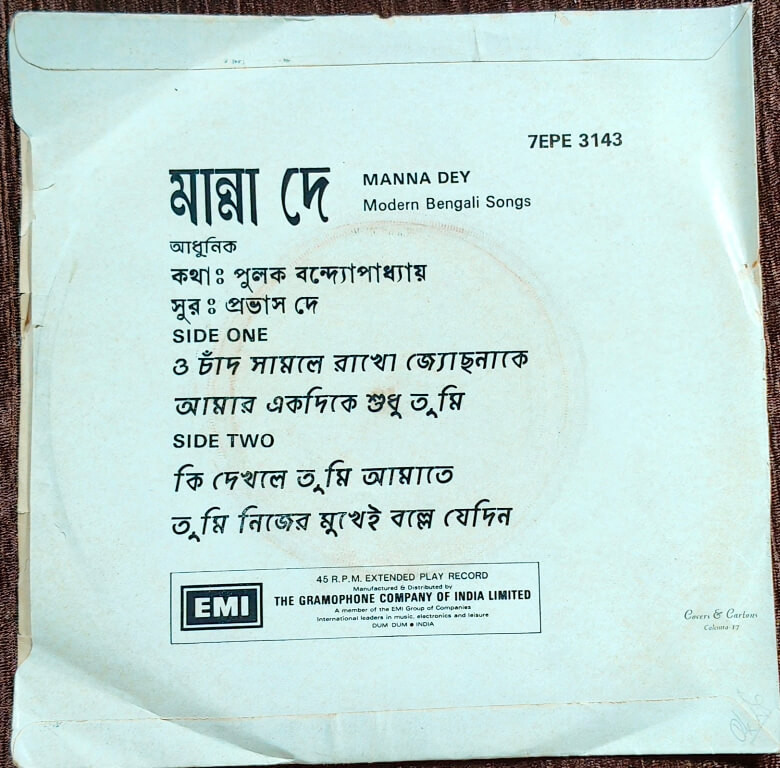 7EPE 3143
মান্না দে
MANNA DEY
Modern Bengali Songs
আধুনিক
কথা : পুলক বন্দ্যোপাধ্যায়
সুর : প্রভাস দে
SIDE ONE
ও চাঁদ সামলে রাখো জ্যোছনাকে
আমার একদিকে শুধু তুমি
SIDE TWO
কি দেখলে তুমি আমাতে
তুমি নিজের মুখেই বল্লে যেদিন
EMI
45 R.P.M. EXTENDED PLAY RECORD
Manufactured & Distributed by
THE GRAMOPHONE COMPANY OF INDIA LIMITED
A member of the EMI Group of Companies
International leaders in music, electronics and leisure
DUM DUM ● INDIA
Covers & Cartons
Calcutta-17